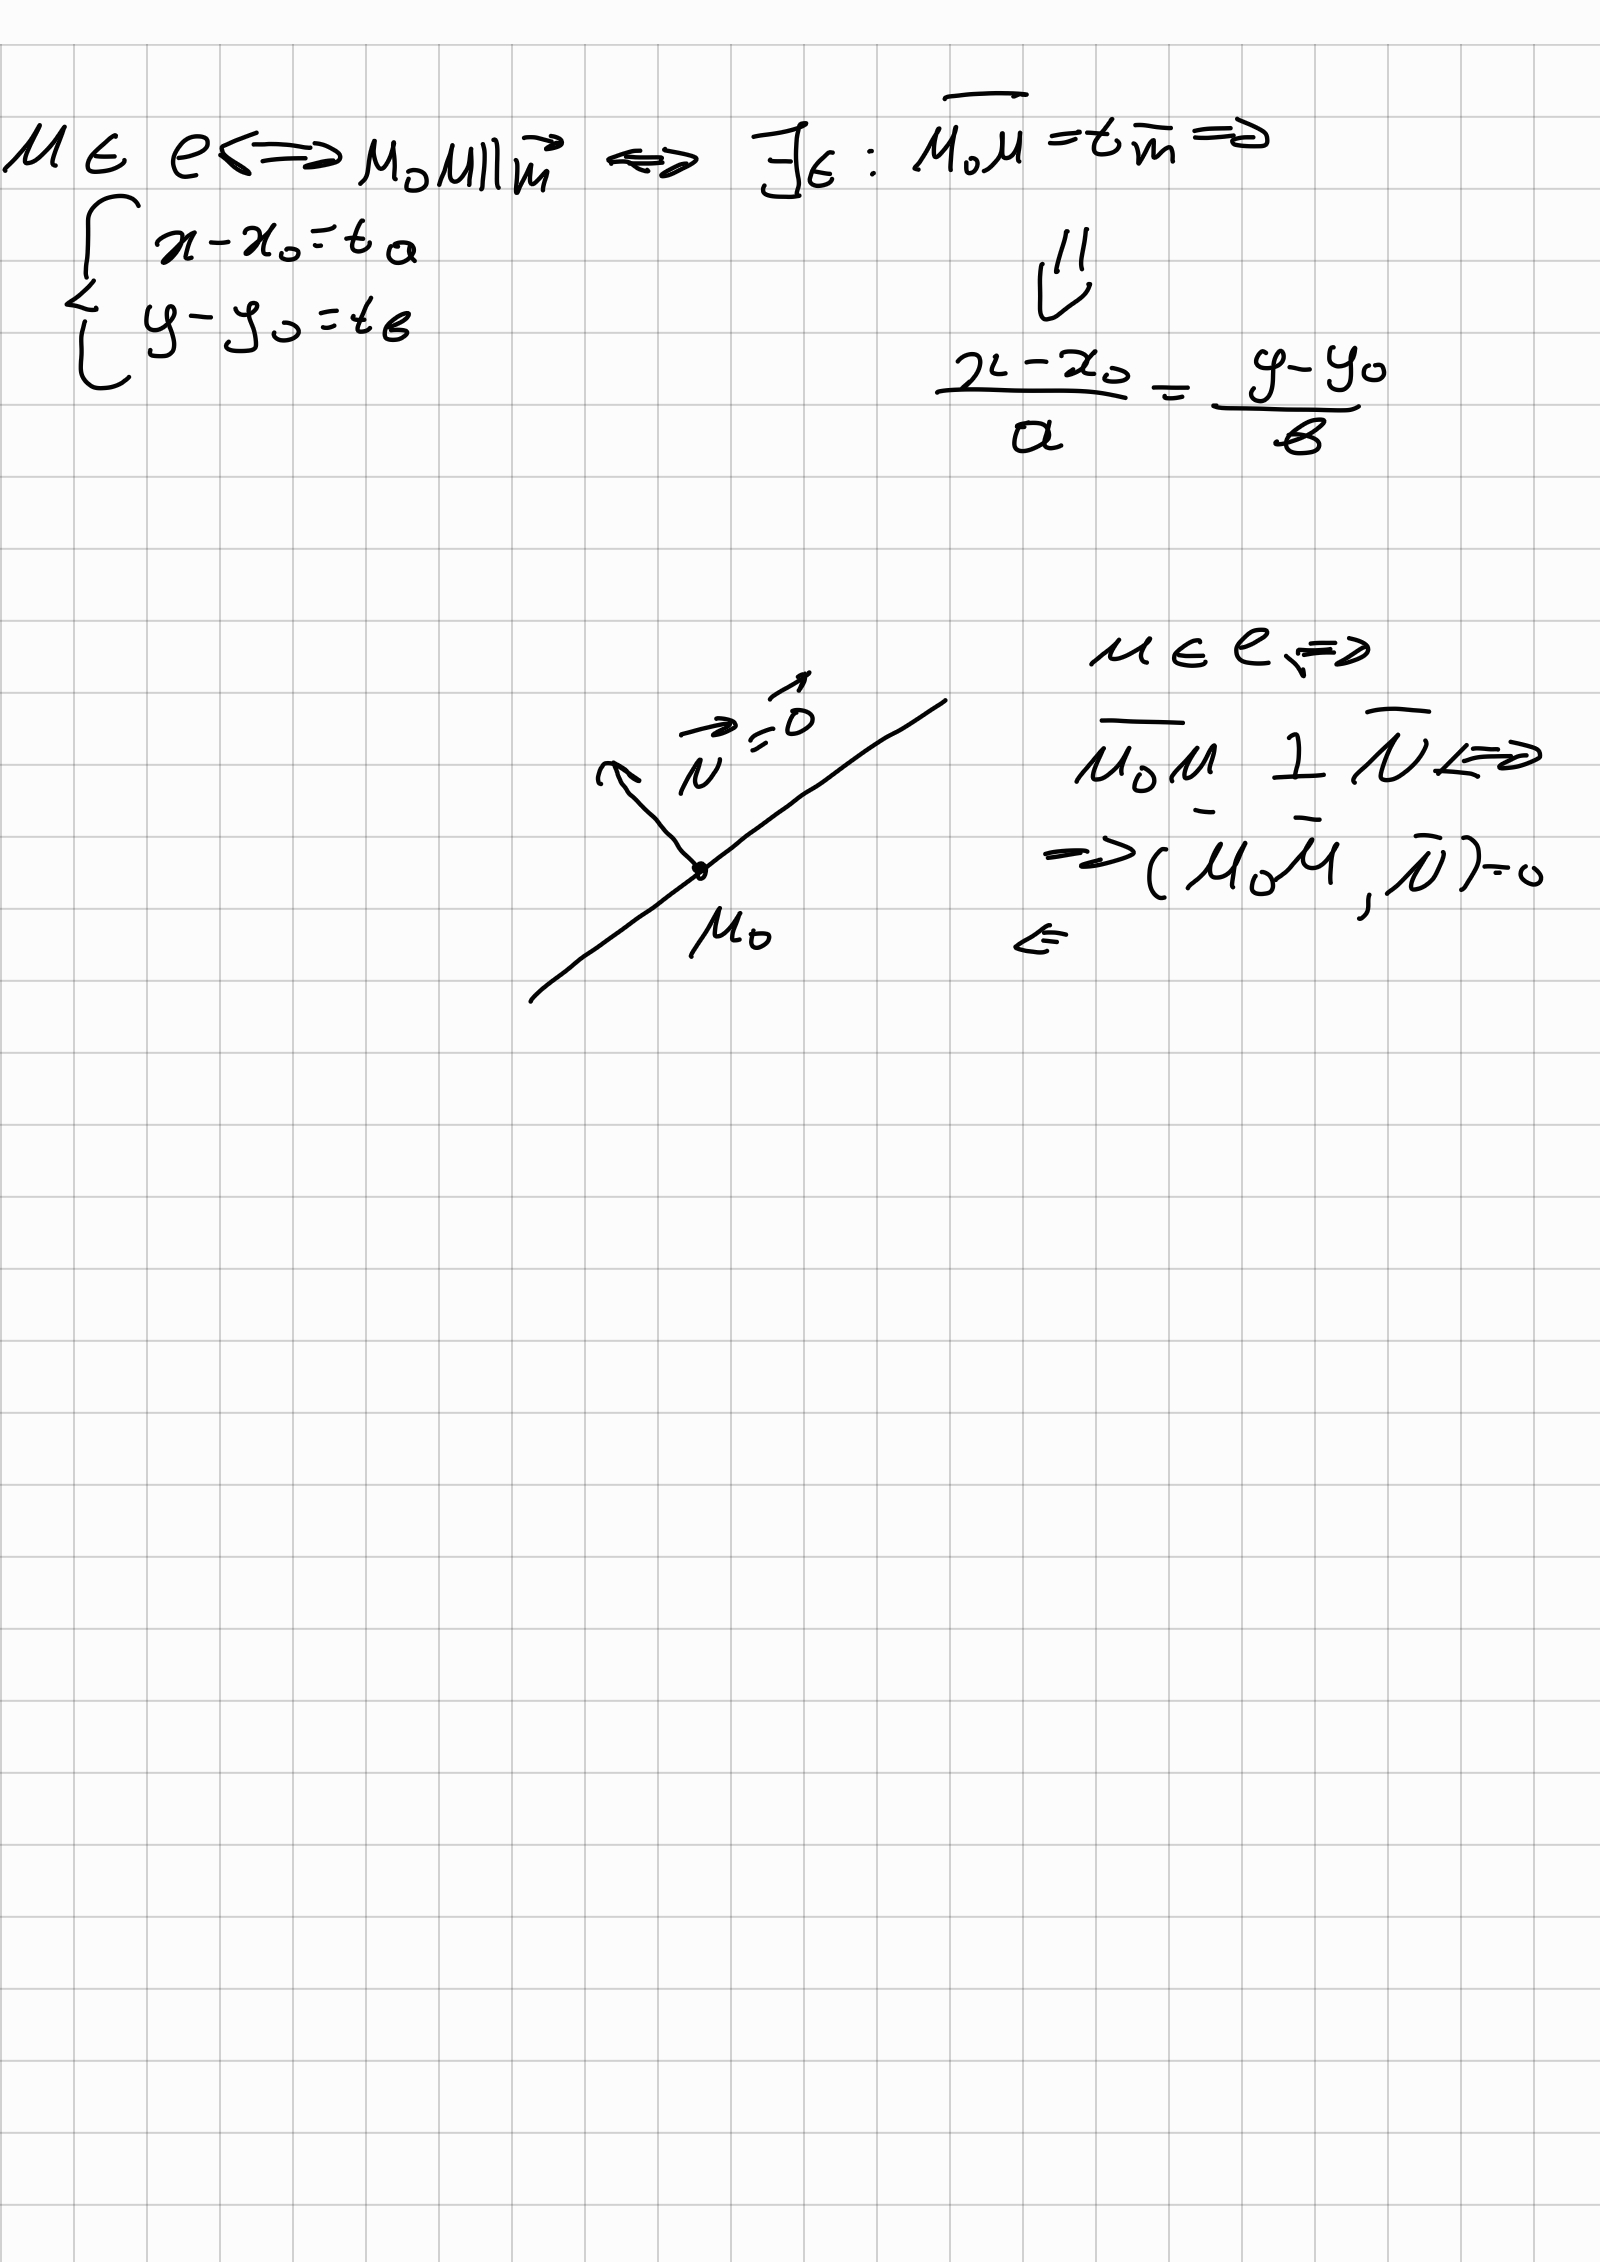 M ∈ e ⟺ M₀M || m⃗ ⟺ ∃ t : M₀M̅ = t m̅ ⟹
{ x - x₀ = ta
y - y₀ = tв
⇓
(x - x₀)/a = (y - y₀)/в
M ∈ e ⟺
N⃗ = 0⃗
M₀M̅ ⊥ N̅ ⟺
⟹ (M̅₀M̅, N̅) = 0
M₀
⇐